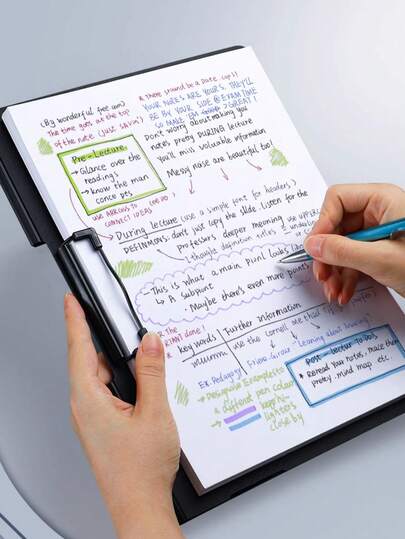 (By wonderful free am)
The time goes at the top
of the note. (Just sayin')
* there should be a Date, cup!!
YOUR NOTES ARE YOURS. THEY'LL
BE BY YOUR SIDE @ EXAM TIME
SO MAKE 'EM GREAT!
Don't worry about making you
notes pretty DURING lecture
You'll miss valuable information
Messy noise are beautiful too!
Pre-Lecture
→ Glance over the
readings
→ know the man
conce pts
USE ARROWS TO
CONNECT IDEAS
During lecture (use a simple font for headers)
DEFINITIONS: don't just copy the slide. Listen for the
professors deeper meaning
- This is what a main Point Looks like
↳ A subpoint
• Maybe there's even more points
Key words
Further information
use the cornell me
EX. Pedagogy
"Leaning about leaning"
→ Designate Examples to
a different pen colour
keep hi-
lighters
close by
Post - Lecture To Do's
• Reread You notes, make them
pretty, mind map, etc.